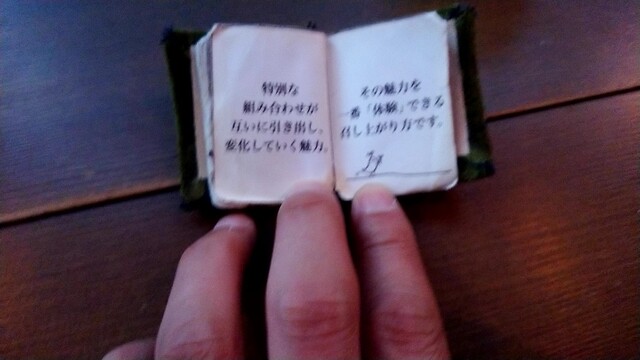 特別な
組み合わせが
互いに引き出し、
変化していく魅力。
その魅力を
一番「体験」できる
召し上がり方です。